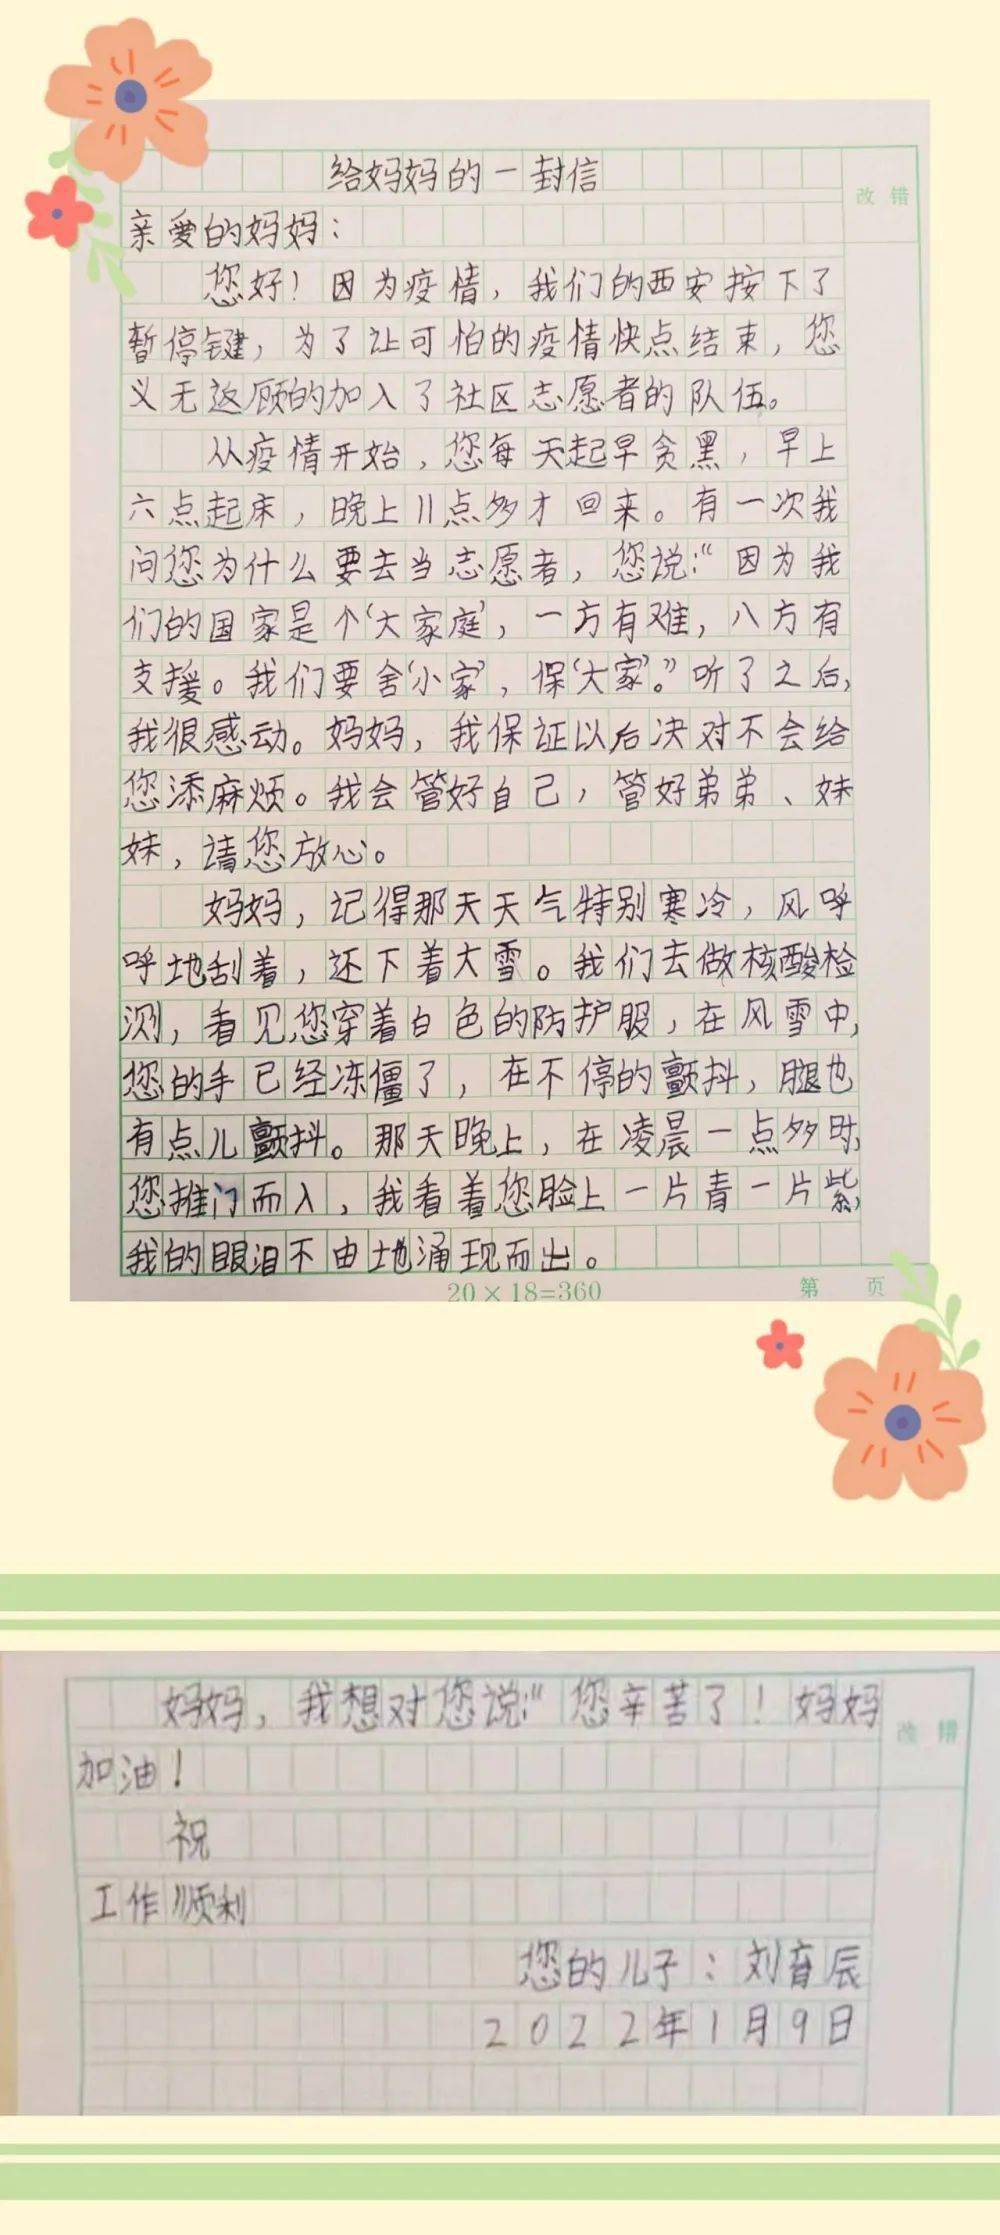 给妈妈的一封信
改错
亲爱的妈妈：
您好！因为疫情，我们的西安按下了
暂停键，为了让可怕的疫情快点结束，您
义无返顾的加入了社区志愿者的队伍。
从疫情开始，您每天起早贪黑，早上
六点起床，晚上11点多才回来。有一次我
问您为什么要去当志愿者，您说：“因为我
们的国家是个‘大家庭’，一方有难，八方有
支援。我们要舍‘小家’，保‘大家’。”听了之后，
我很感动。妈妈，我保证以后决对不会给
您添麻烦。我会管好自己，管好弟弟、妹
妹，请您放心。
妈妈，记得那天天气特别寒冷，风呼
呼地刮着，还下着大雪。我们去做核酸检
测，看见您穿着白色的防护服，在风雪中，
您的手已经冻僵了，在不停的颤抖，腿也
有点儿颤抖。那天晚上，在凌晨一点多时，
您推门而入，我看着您脸上一片青一片紫，
我的眼泪不由地涌现而出。
20×18=360
第 页
妈妈，我想对您说：“您辛苦了！妈妈
改错
加油！
祝
工作顺利
您的儿子：刘音辰
2022年1月9日